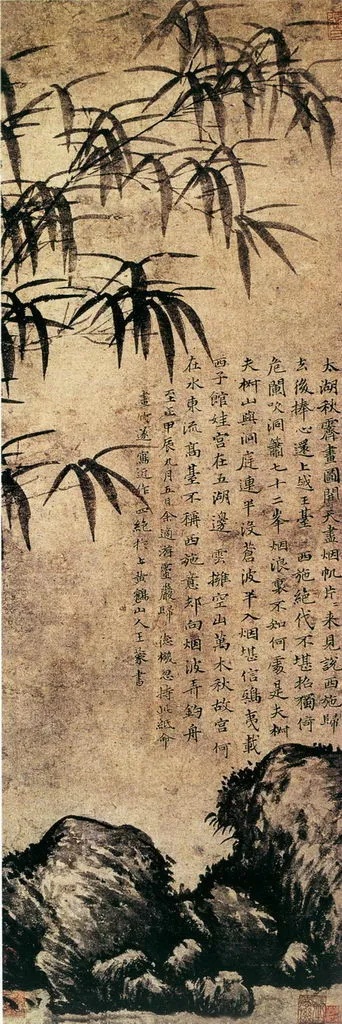 太湖秋霽畫圖開天畫烟帆片片來見說西施歸
去後捧心還上感王臺 西施絕代不堪招獨倚
危闌吹洞簫七十二峯烟浪裏不知何處是夫椒
夫椒山與洞庭連半沒蒼波半入烟堪信鴟夷載
西子館娃宮在五湖邊 雲擁空山萬木秋故宮何
在水東流高臺不稱西施意却向烟波弄釣舟
至正甲辰九月五日余適游靈巖歸德機忽持此紙命
畫竹遂寫近作四絕於上黃鶴山人王蒙書